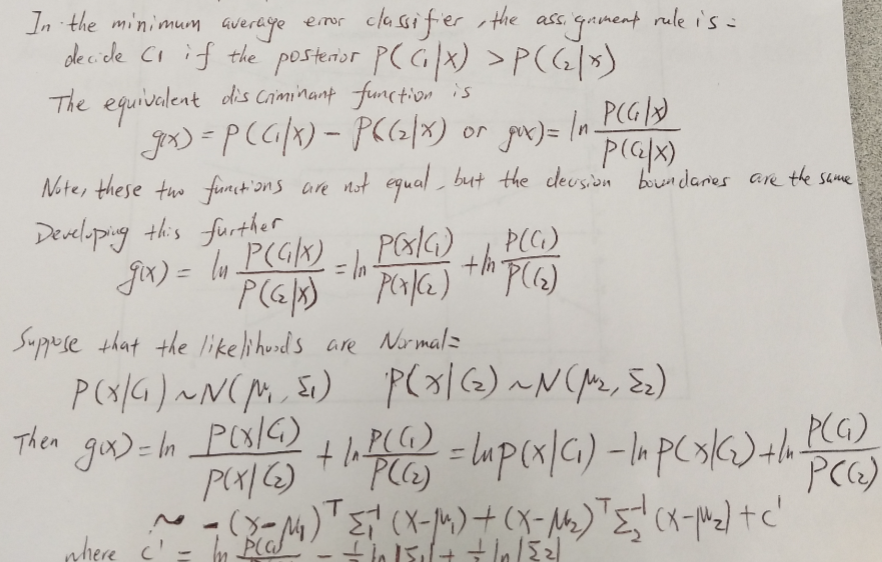 In the minimum average error classifier, the assignment rule is:
decide C1 if the posterior P(C₁|x) > P(C₂|x)
The equivalent discriminant function is
g(x) = P(C₁|x) − P(C₂|x) or g(x) = ln P(C₁|x) / P(C₂|x)
Note, these two functions are not equal, but the decision boundaries are the same
Developing this further
g(x) = ln P(C₁|x) / P(C₂|x) = ln P(x|C₁) / P(x|C₂) + ln P(C₁) / P(C₂)
Suppose that the likelihoods are Normal:
P(x|C₁) ~ N(μ₁, Σ₁) P(x|C₂) ~ N(μ₂, Σ₂)
Then g(x) = ln P(x|C₁) / P(x|C₂) + ln P(C₁) / P(C₂) = ln P(x|C₁) − ln P(x|C₂) + ln P(C₁) / P(C₂)
~ −(x−μ₁)ᵀ Σ₁⁻¹ (x−μ₁) + (x−μ₂)ᵀ Σ₂⁻¹ (x−μ₂) + c'
where c' = ln P(C₁) − ½ ln|Σ₁| + ½ ln|Σ₂|